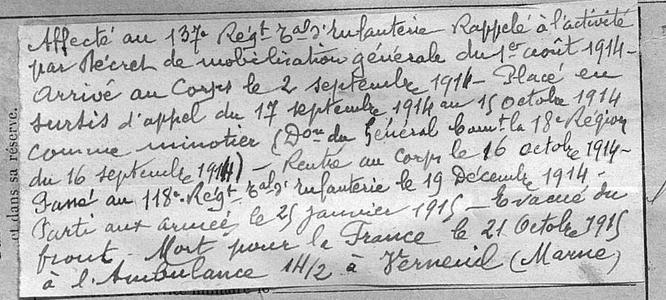 Affecté au 137e Régt Tal d'Infanterie Rappelé à l'activité
par Décret de mobilisation générale du 1er août 1914 -
Arrivé au Corps le 2 septembre 1914 - Placé en
sursis d'appel du 17 septembre 1914 au 15 octobre 1914
comme minotier (Don du Général Comt la 18e Région
du 16 septembre 1914) - Rentré au corps le 16 octobre 1914 -
Passé au 118e Régt Tal d'Infanterie le 19 Décembre 1914 -
Parti aux armées le 25 janvier 1915 - Evacué du
front - Mort pour la France le 21 Octobre 1915
à l'Ambulance 14/2 à Verneuil (Marne)
et dans sa réserve.